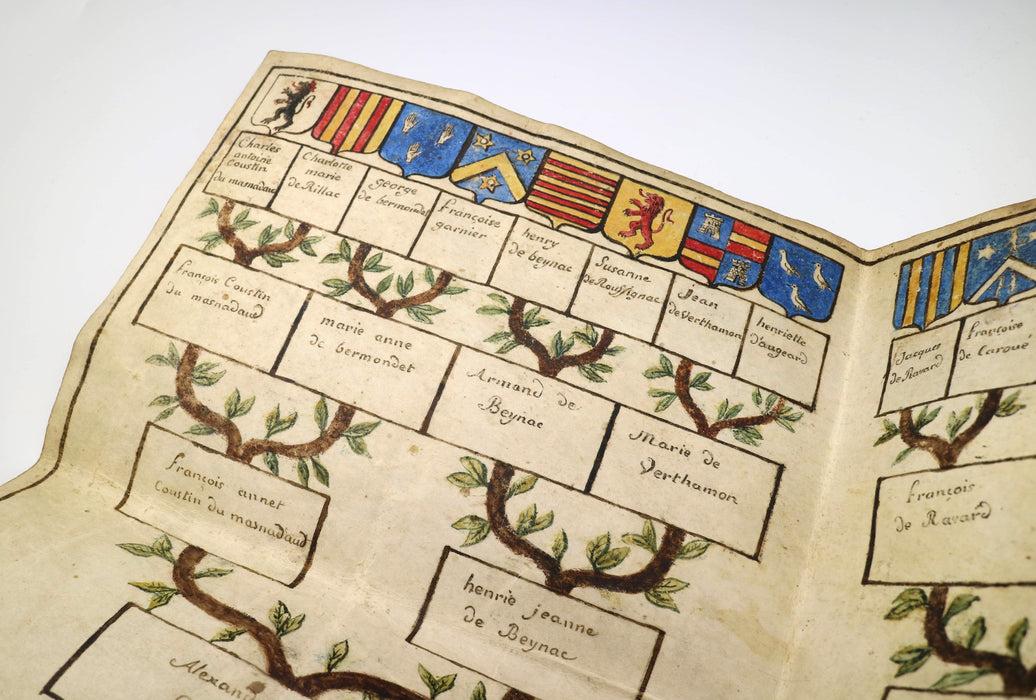 Charles
antoine
Coustin
du masnadau
Charlotte
marie
de Rillac
george
de bermondet
françoise
garnier
henry
de beynac
Susanne
de Rouffignac
Jean
de Verthamon
henriette
d'augeard
Jacques
de Ravard
françoise
de Carque
françois Coustin
du masnadaud
marie anne
de bermondet
Armand de
Beynac
Marie de
Verthamon
françois
de Ravard
françois annet
Coustin du masnadaud
henrie jeanne
de Beynac